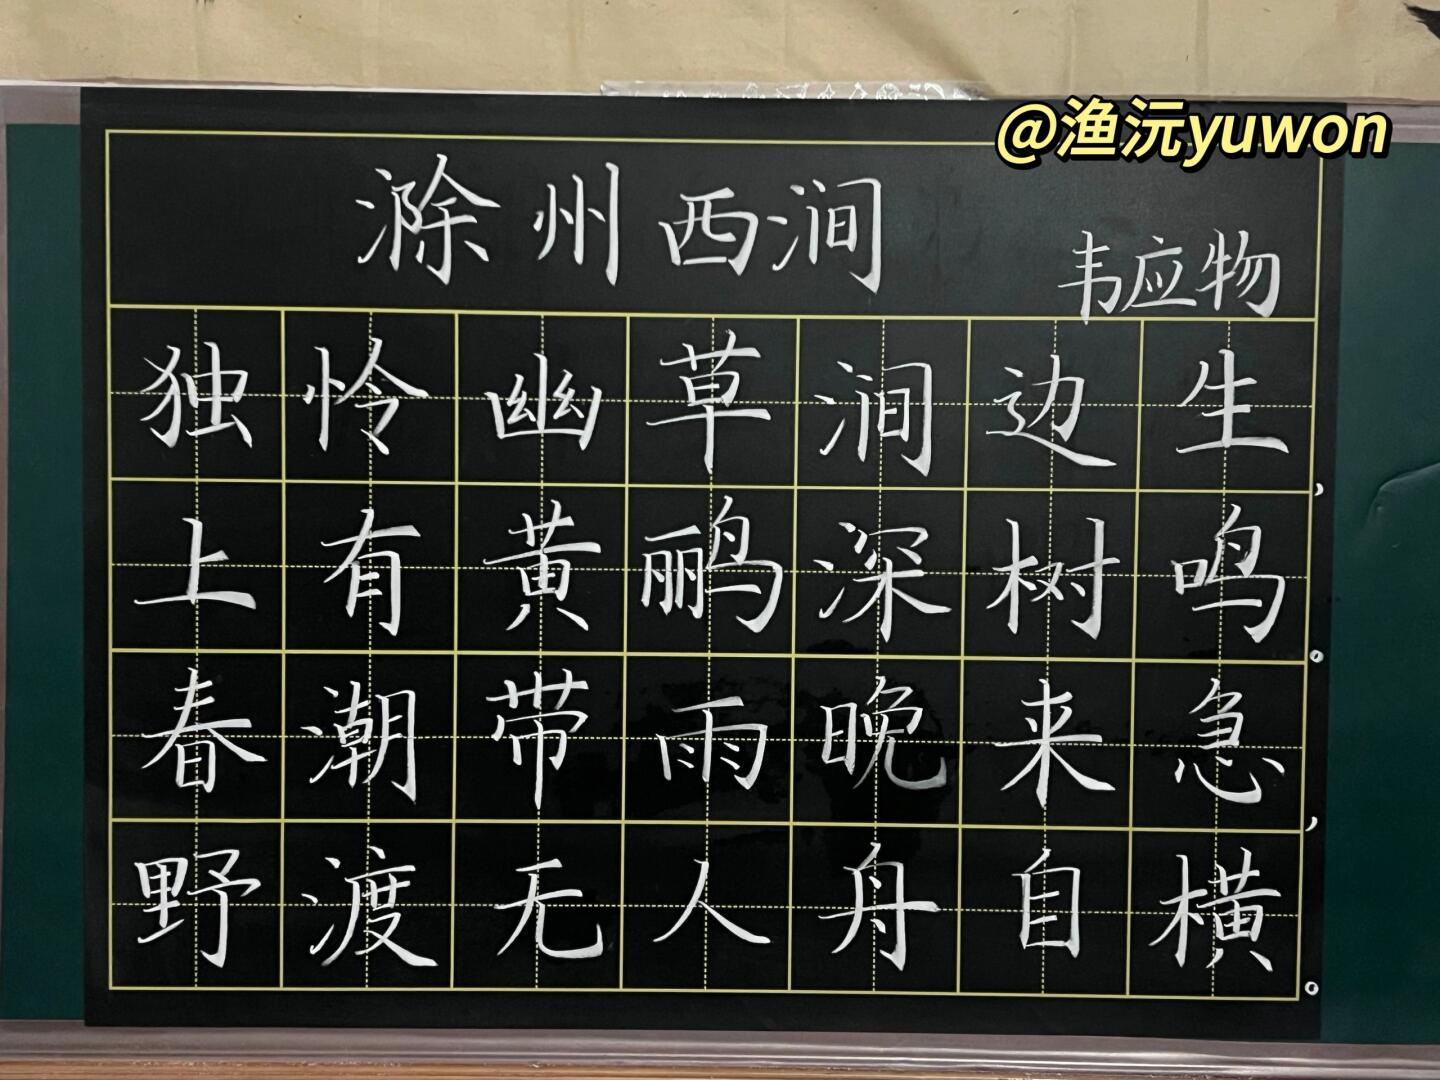 @渔沅yuwon
滁州西涧
韦应物
独怜幽草涧边生，
上有黄鹂深树鸣。
春潮带雨晚来急，
野渡无人舟自横。